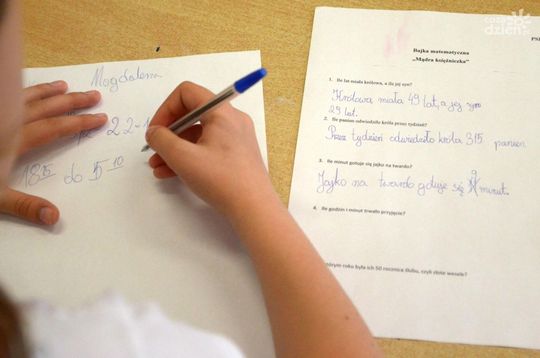 Magdalena
22-1
18 15 do 5 10
Bajka matematyczna
„Mądra księżniczka”
1. Ile lat miała królowa, a ile jej syn?
Królowa miała 49 lat, a jej syn
29 lat.
2. Ile panien odwiedziło króla przez tydzień?
Przez tydzień odwiedziło króla 315 panien
3. Ile minut gotuje się jajko na twardo?
Jajko na twardo gotuje się 9 minut.
4. Ile godzin i minut trwało przyjęcie?
którym roku była ich 50 rocznica ślubu, czyli złote wesele?